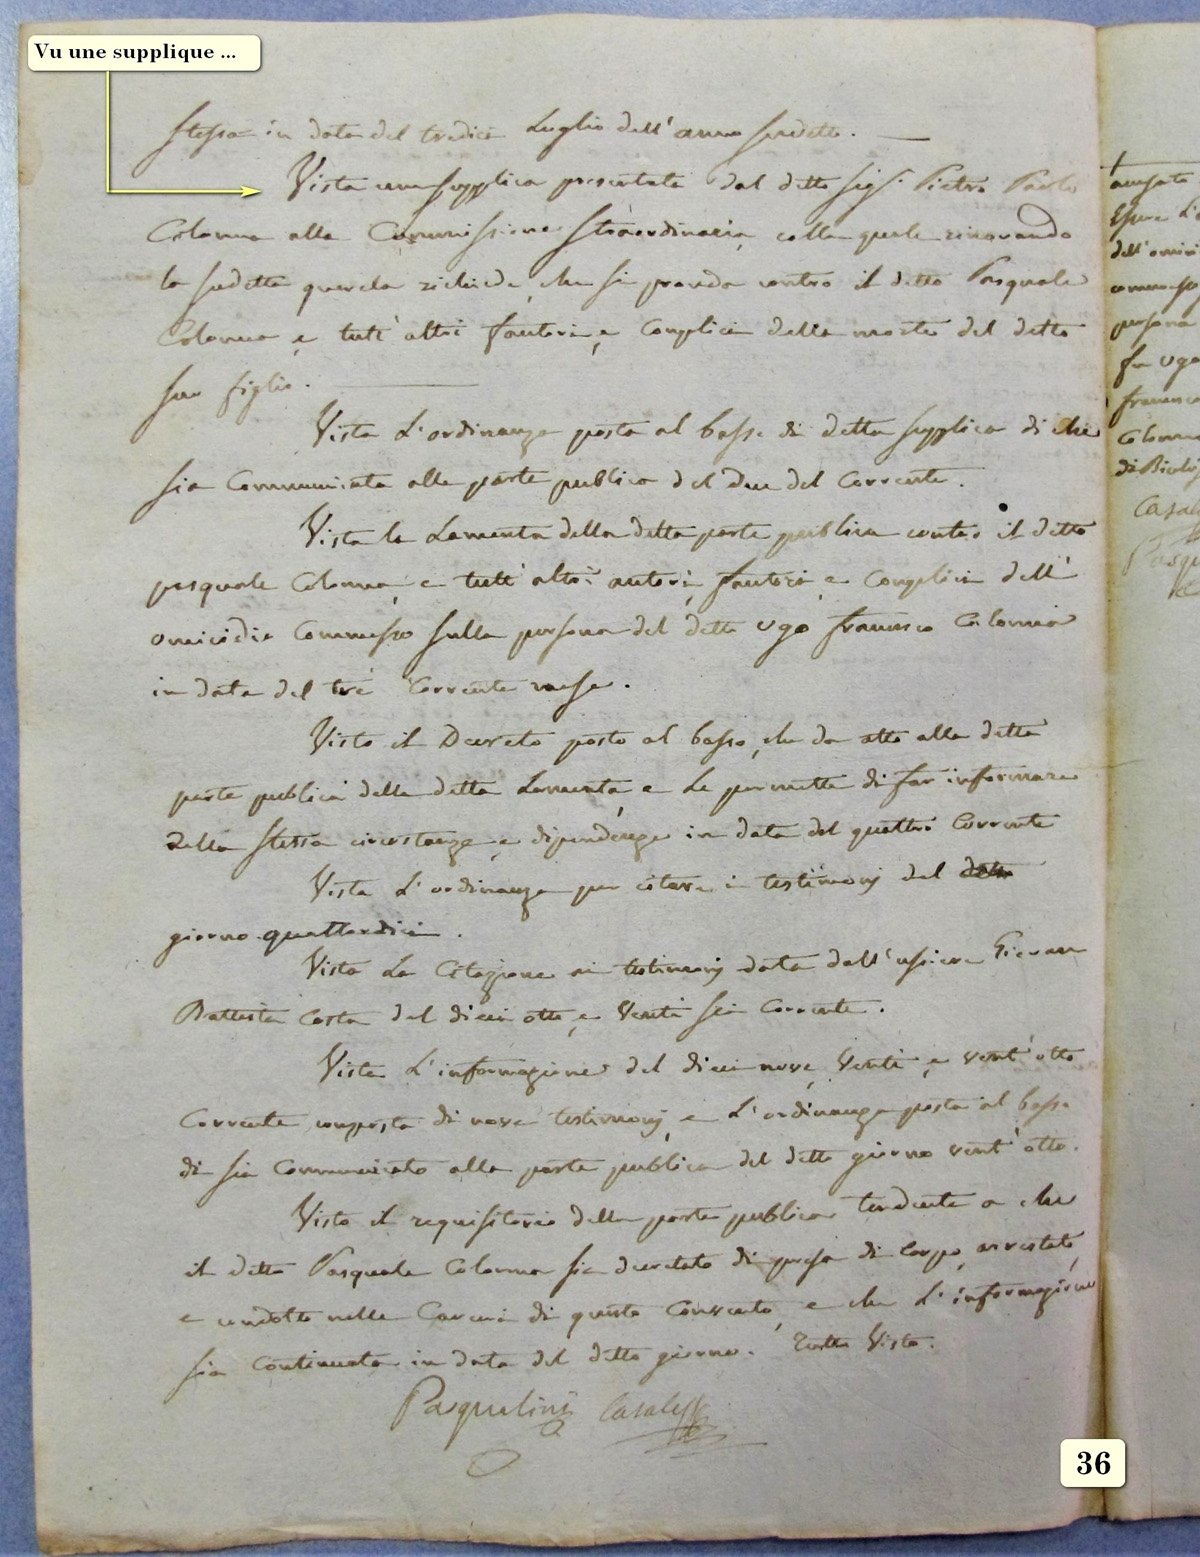 Vu une supplique ...
stessa in data del tredici Luglio dell'anno sudetto.
Vista una supplica presentata dal detto Sigr. Pietro Paolo
Colonna alla Commissione Straordinaria colla quale rinovando
la sudetta querela richiede, che si proceda contro il detto Pasquale
Colonna e tutt'altri fautori, e Complici della morte del detto
suo figlio.
Vista L'ordinanza posta al basso di detta supplica di che
sia Communicata alla parte publica del Due del Corrente.
Vista la Lamenta della detta parte publica contro il detto
pasquale Colonna, e tutt'altri autori, fautori, e Complici dell'
omicidio Commesso sulla persona del detto Ugo francesco Colonna
in data del tre Corrente mese.
Visto il Decreto posto al basso, che da atto alla detta
parte publica della detta Lamenta, e Le permette di far informare
della stessa circostanze, e dipendenze in data del quattro Corrente
Vista L'ordinanza per citare i testimonj del
giorno quattordici.
Vista La Citazione ai testimonj data dall'usciere Giovan
Battista Costa del dieci otto, e Venti sei Corrente.
Vista L'informazione del dieci nove, Venti, e vent'otto
Corrente composta di nove testimonj, e L'ordinanza posta al basso
di sia Communicato alla parte publica del detto giorno vent'otto.
Visto il requisitorio della parte publica tendente a che
il detto Pasquale Colonna sia decretato di presa di Corpo, arrestato,
e condotto nelle Carceri di questo Convento, e che L'informazione
sia Continuata in data del detto giorno. Tutto Visto.
Pasqualini Casale
36
ansato
dell'omici
commesso
persona
fu Ugo
francesco
Colonna